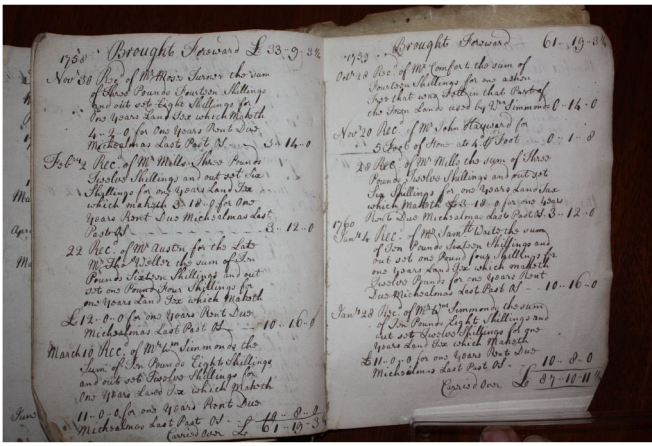 1758 Brought Foreward £ 33-9-3½
Nov 30 Rec. of Mr Moses Turner the sum
of Three Pounds Fourteen Shillings
and out set Eight Shillings for
One Years Land Tax which Maketh
4-2-0 for One Years Rent Due
Michealmas Last Past OS - 3-14-0
Feb 2 Rec. of Mr Mills Three Pounds
Twelve Shillings and out set Six
Shillings for one years Land Tax
which maketh 3-18-0 for One
Years Rent Due Michealmas Last
Past OS - 3-12-0
22 Rec. of Mr Austin for the Late
Mr Tho Weller the sum of Ten
Pounds Sixteen Shillings and out
set one Pound Four Shillings for
one years Land Tax which Maketh
£12-0-0 for one Years Rent Due
Michealmas Last Past OS - 10-16-0
March 10 Rec. of Mr Wm Simmonds the
Sum of Ten Pounds Eight Shillings
and out set Twelve Shillings for
One Years Land Tax which Maketh
11-0-0 for one Years Rent Due
Michealmas Last Past OS - 10-8-0
Carried Over £ 61-19-3½
1759 Brought Foreward 61-19-3½
Oct 28 Rec of Mr Comfort the sum of
Fourteen Shillings for one ashen
Tree that was in that Part of
the Land used by Wm Simmonds 0-14-0
Nov 20 Rec. of Mr John Hayward for
5 Foot of Stone at 4d Foot 0-1-8
28 Rec. of Mr Mills the sum of Three
Pounds Twelve Shillings and out set
Six Shillings for one Years Land Tax
which Maketh £3-18-0 for one years
Rent Due Michealmas Last Past OS 3-12-0
1760
Jan 4 Rec. of Mr Saml Waite the sum
of Ten Pounds Sixteen Shillings and
out set one Pound four Shillings for
one years Land Tax which maketh
Twelve Pounds for one years Rent
Due Michealmas Last Past OS - 10-16-0
Jan 28 Rec. of Mr Wm Simmonds the sum
of Ten Pounds Eight Shillings and
out set Twelve Shillings for one
Years Land Tax which Maketh
£11-0-0 for one Years Rent Due
Michealmas Last Past OS - 10-8-0
Carried Over £ 87-10-11½